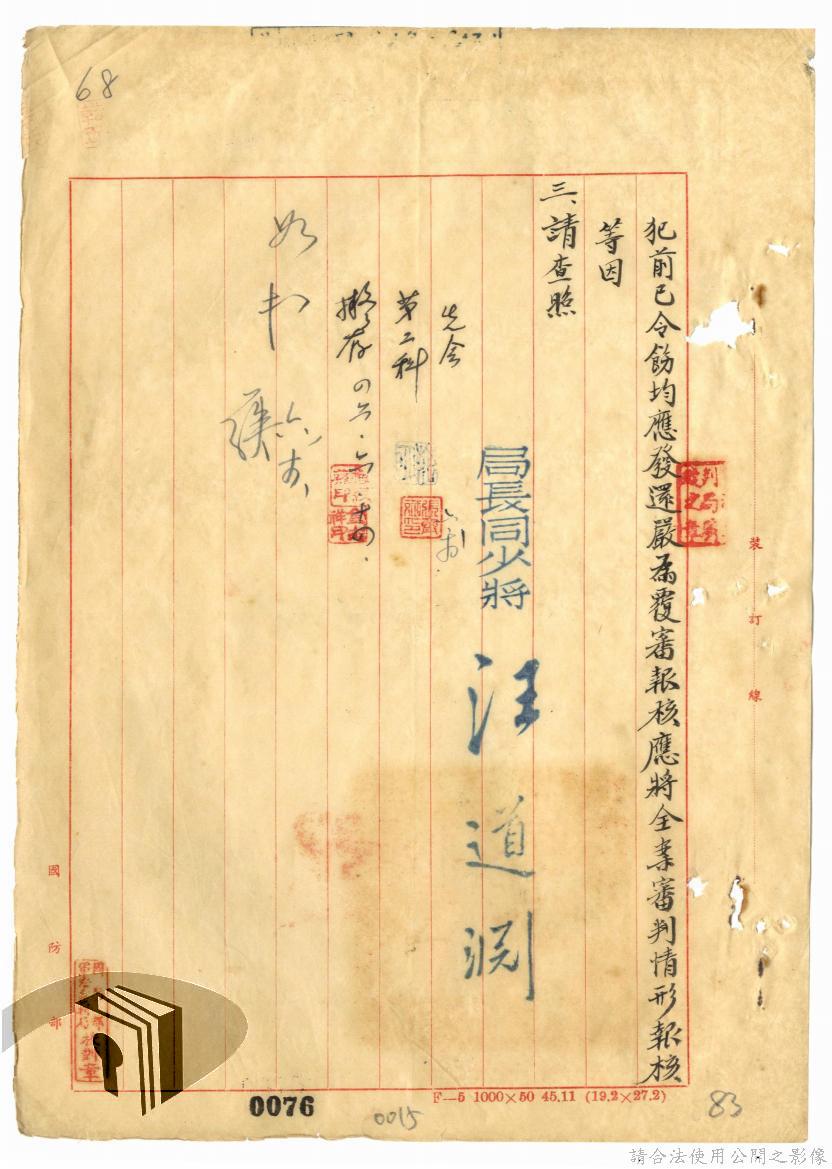 68
犯前已令飭均應發還嚴為覆審報核應將全案審判情形報核
等因
三、請查照
局長同少將 汪道淵
先會
第二科
擬存
如擬
裝訂線
國防部
0076
0015
F—5 1000×50 45.11 (19.2×27.2)
83
請合法使用公開之影像